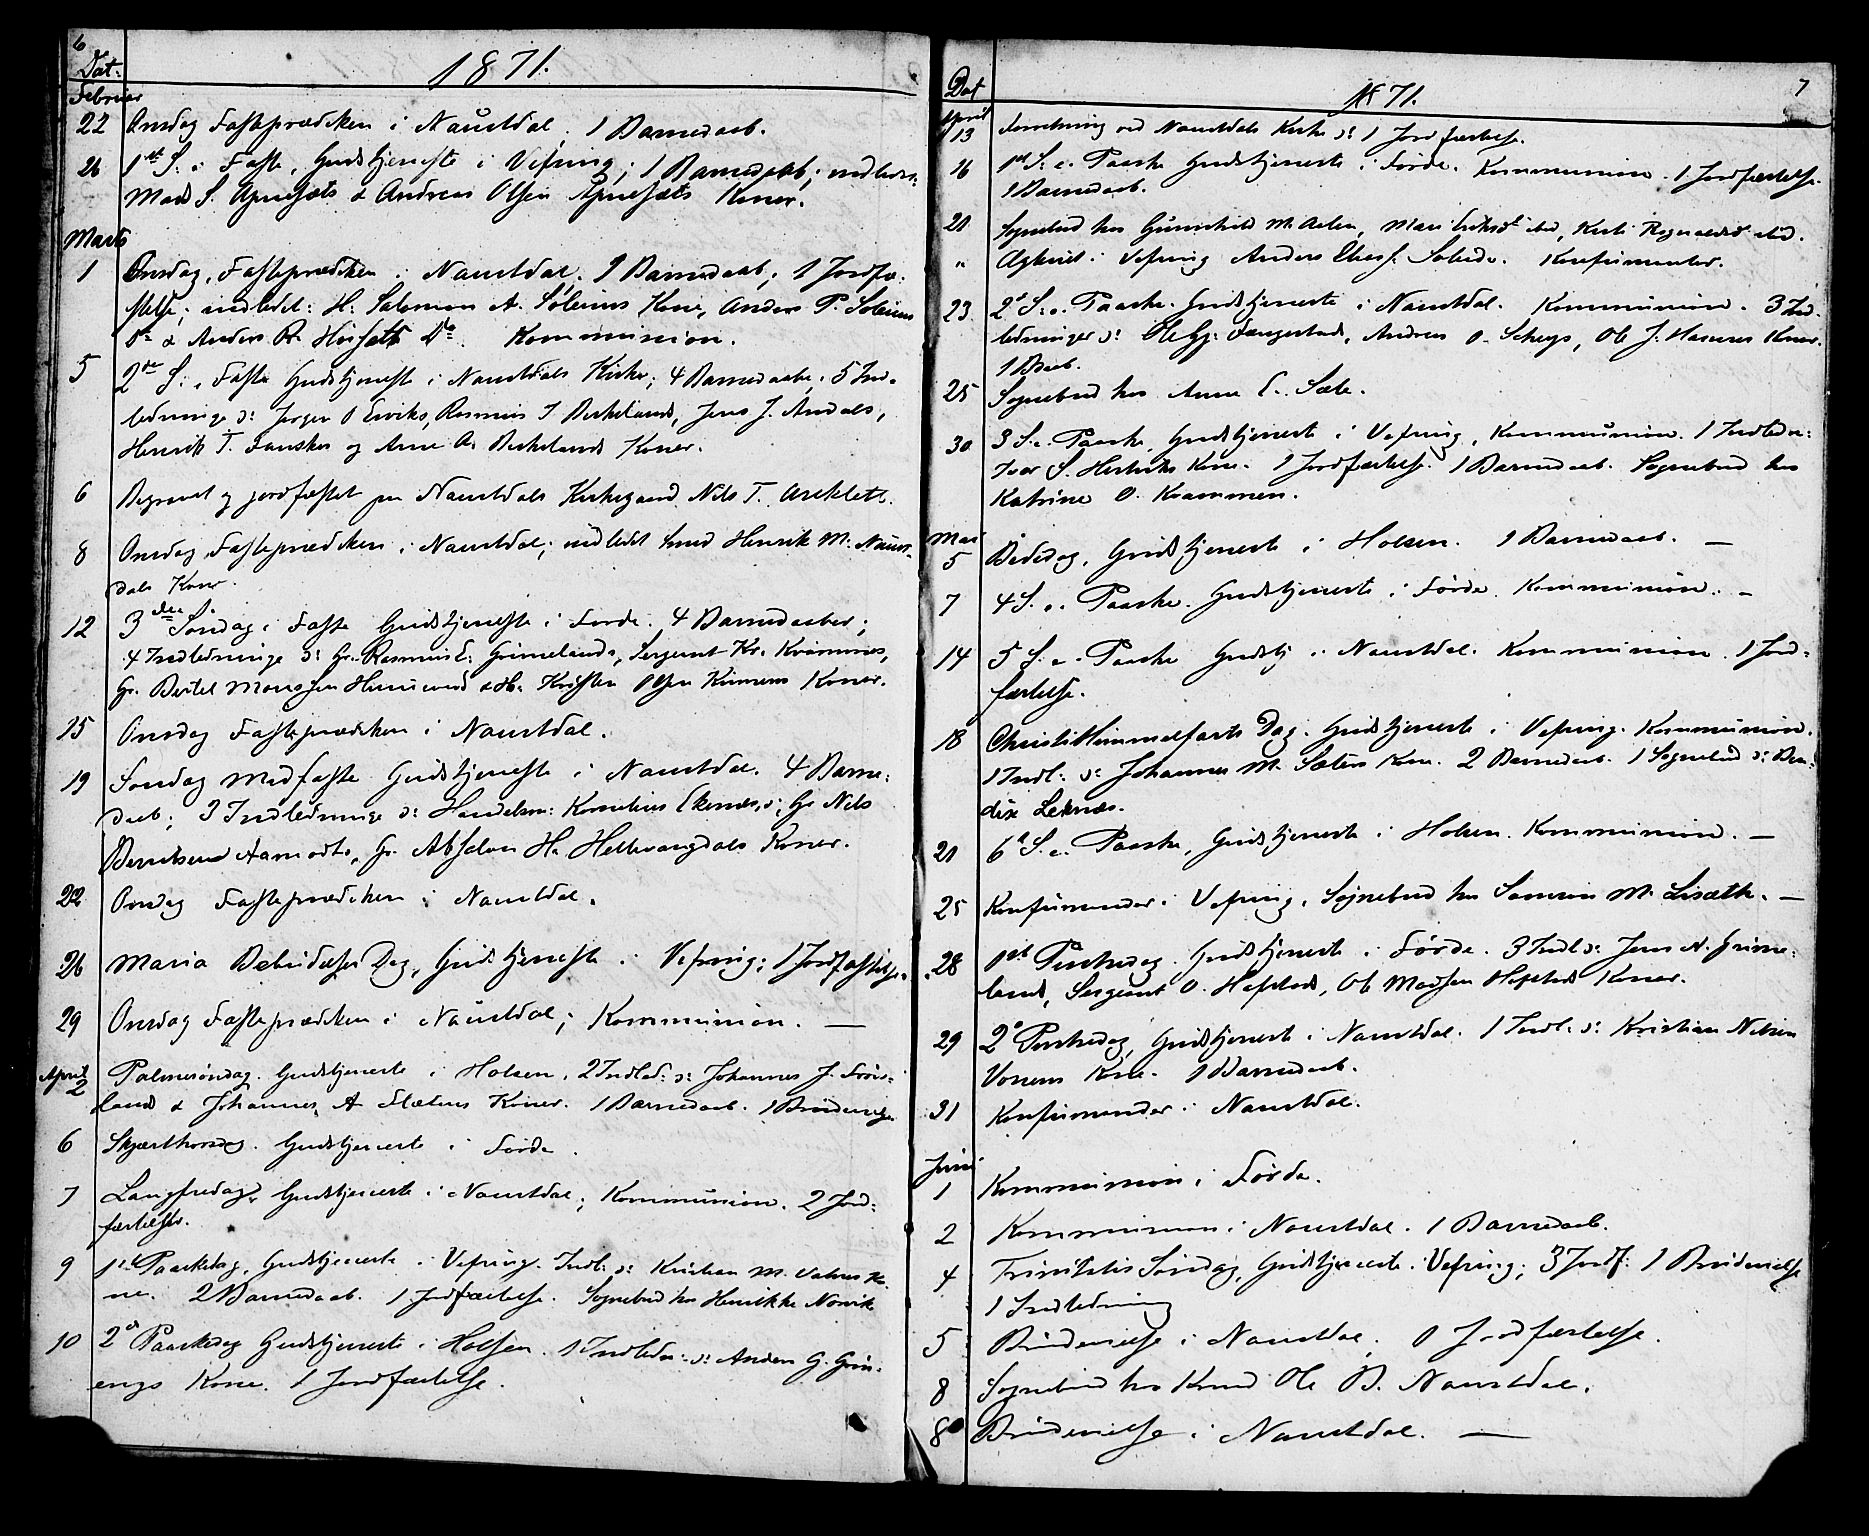 6
Dat:
1871.
Februar
22 Onsdag Fasteprædiken i Naustdal. 1 Barnedaab.
26 1ste S: i Faste, Gudstjeneste i Vefring; 1 Barnedaab; indledet:
Mads S. & Andreas Olsen Koner.
Marts
1 Onsdag, Fasteprædiken i Naustdal. 1 Barnedaab; 1 Jordfæ-
stelse; indledet: H: Salomon A. Soleims Kone, Anders P. Soleims
Do & Anders R. Do. Kommunion.
5 2den S: i Faste Gudstjeneste i Naustdals Kirke; 4 Barnedaabe. 5 Ind-
ledninge ɔ: Jørgen O Erviks, Rasmus J Birkelands, Jens J. Andals,
Henrik T. og Arne A. Birkelands Koner.
6 Begravet og jordfæstet paa Naustdals Kirkegaard Nils T.
8 Onsdag Fasteprædiken i Naustdal; indledet Henrik M. Naust-
dals Kone.
12 3die Søndag i Faste Gudstjeneste i Førde. 4 Barnedaaber;
4 Indledninge ɔ: Gr. Rasmus E. Grimelands, Sergeant Kr. Kvammes,
Gr. Bertel Monssen & H: Kristen Olsen Koner.
15 Onsdag Fasteprædiken i Naustdal.
19 Søndag Midfaste Gudstjeneste i Naustdal. 4 Barne-
daab; 3 Indledninge ɔ: Handelsm: Kornelius Ekenæs, Gr Nils
Berntsens Aamodts, Gr. Absalon H. Hellevangdals Koner.
22 Onsdag Fasteprædiken i Naustdal.
26 Maria Bebudelses Dag, Gudstjeneste i Vefring; 1 Jordfæstelse.
29 Onsdag Fasteprædiken i Naustdal; Kommunion. —
April
2 Palmesøndag. Gudstjeneste i Holsen. 2 Indled: ɔ: Johannes J.
lands & Johannes A. Koner. 1 Barnedaab. 1 Brudevielse
6 Skjærthorsdag. Gudstjeneste i Førde.
7 Langfredag Gudstjeneste i Naustdal; Kommunion. 2 Jord-
fæstelser.
9 1ste Paaskedag, Gudstjeneste i Vefring. Indl: ɔ: Kristian M. Ko-
ne. 2 Barnedaab. 1 Jordfæstelse. Sognebud hos Henrikke
10 2d Paaskedag Gudstjeneste i Holsen. 1 Indledn: ɔ: Anders G. Grim-
engs Kone. 1 Jordfæstelse.
7
Dat
1871.
April
13 Forretning ved Naustdals Kirke ɔ: 1 Jordfæstelse.
16 1ste S: e. Paaske Gudstjeneste i Førde. Kommunion. 1 Jordfæstelse.
1 Barnedaab.
21 Sognebud hos Gunnhild M.
" i Vefring Anders Konfirmanter.
23 2d S: e. Paaske. Gudstjeneste i Naustdal. Kommunion. 3 Ind-
ledninger ɔ: Andreas O. Ole J. Koner.
1 Bdaab.
25 Sognebud hos Anna E. Sæle.
30 3 S. e. Paaske, Gudstjeneste i Vefring, Kommunion. 1 Indledn:
Ivar S. Kone. 1 Jordfæstelse. 1 Barnedaab. Sognebud hos
Katrine O. Kvammen.
Mai
5 Bededag, Gudstjeneste i Holsen. 1 Barnedaab. —
7 4 S. e. Paaske. Gudstjeneste i Førde. Kommunion. —
14 5 S. e. Paaske Gudstj i Naustdal. Kommunion. 1 Jord-
fæstelse.
18 Christi Himmelfarts Dag. Gudstjeneste i Vefring. Kommunion.
1 Indl: ɔ: Johannes M. Sæters Kone. 2 Barnedaab. 1 Sognebud ɔ: Ben-
dix Leknæs.
21 6te S. e. Paaske, Gudstjeneste i Holsen. Kommunion. —
25 Konfirmander i Vefring. Sognebud hos Samson M. —
28 1ste Pinsedag. Gudstjeneste i Førde. 3 Indl ɔ: Jens N. Grime-
lands, Sergeant O. Hafstads, Ole Madsen Hafstads Koner.
29 2d Pinsedag, Gudstjeneste i Naustdal. 1 Indl: ɔ: Kristian Nilsen
Vonens Kone. 1 Barnedaab.
31 Konfirmander i Naustdal.
Juni
1 Kommunion i Førde.
2 Kommunion i Naustdal. 1 Barnedaab.
4 Trinitatis Søndag, Gudstjeneste i Vefring; 3 Jordf: 1 Brudevielse
1 Indledning
5 Brudevielse i Naustdal. 1 Jordfæstelse.
8 Sognebud hos Knud Ole B. Naustdal.
8 Brudevielse i Naustdal. —